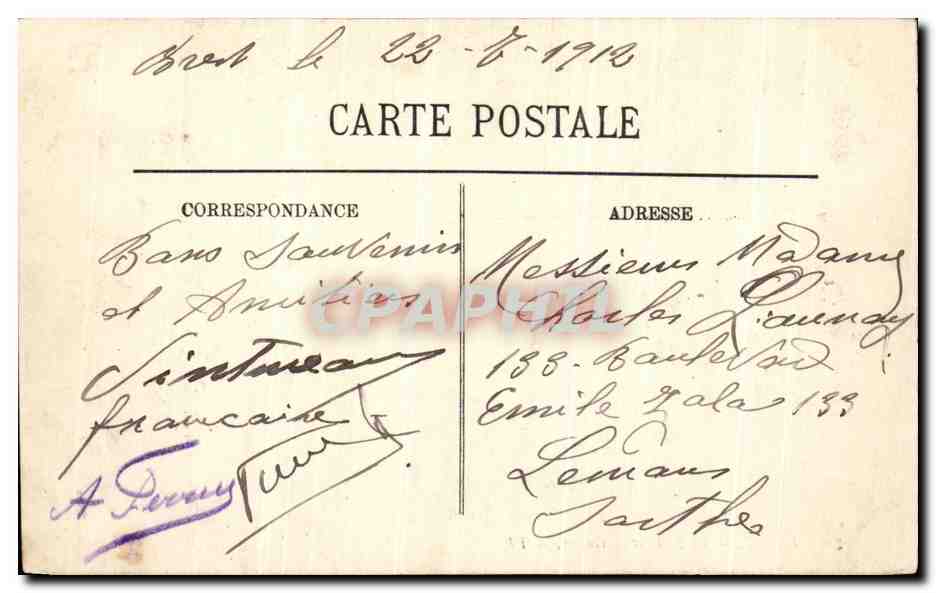 Brest le 22-7-1912
CARTE POSTALE
CORRESPONDANCE
Bons Souvenirs
et Amitiés
francaise
A Ferron
ADRESSE
Messieurs Madame
Charles Launay
133 - Boulevard
Emile Zola 133
Lemans
Sarthe
CPAPHIL